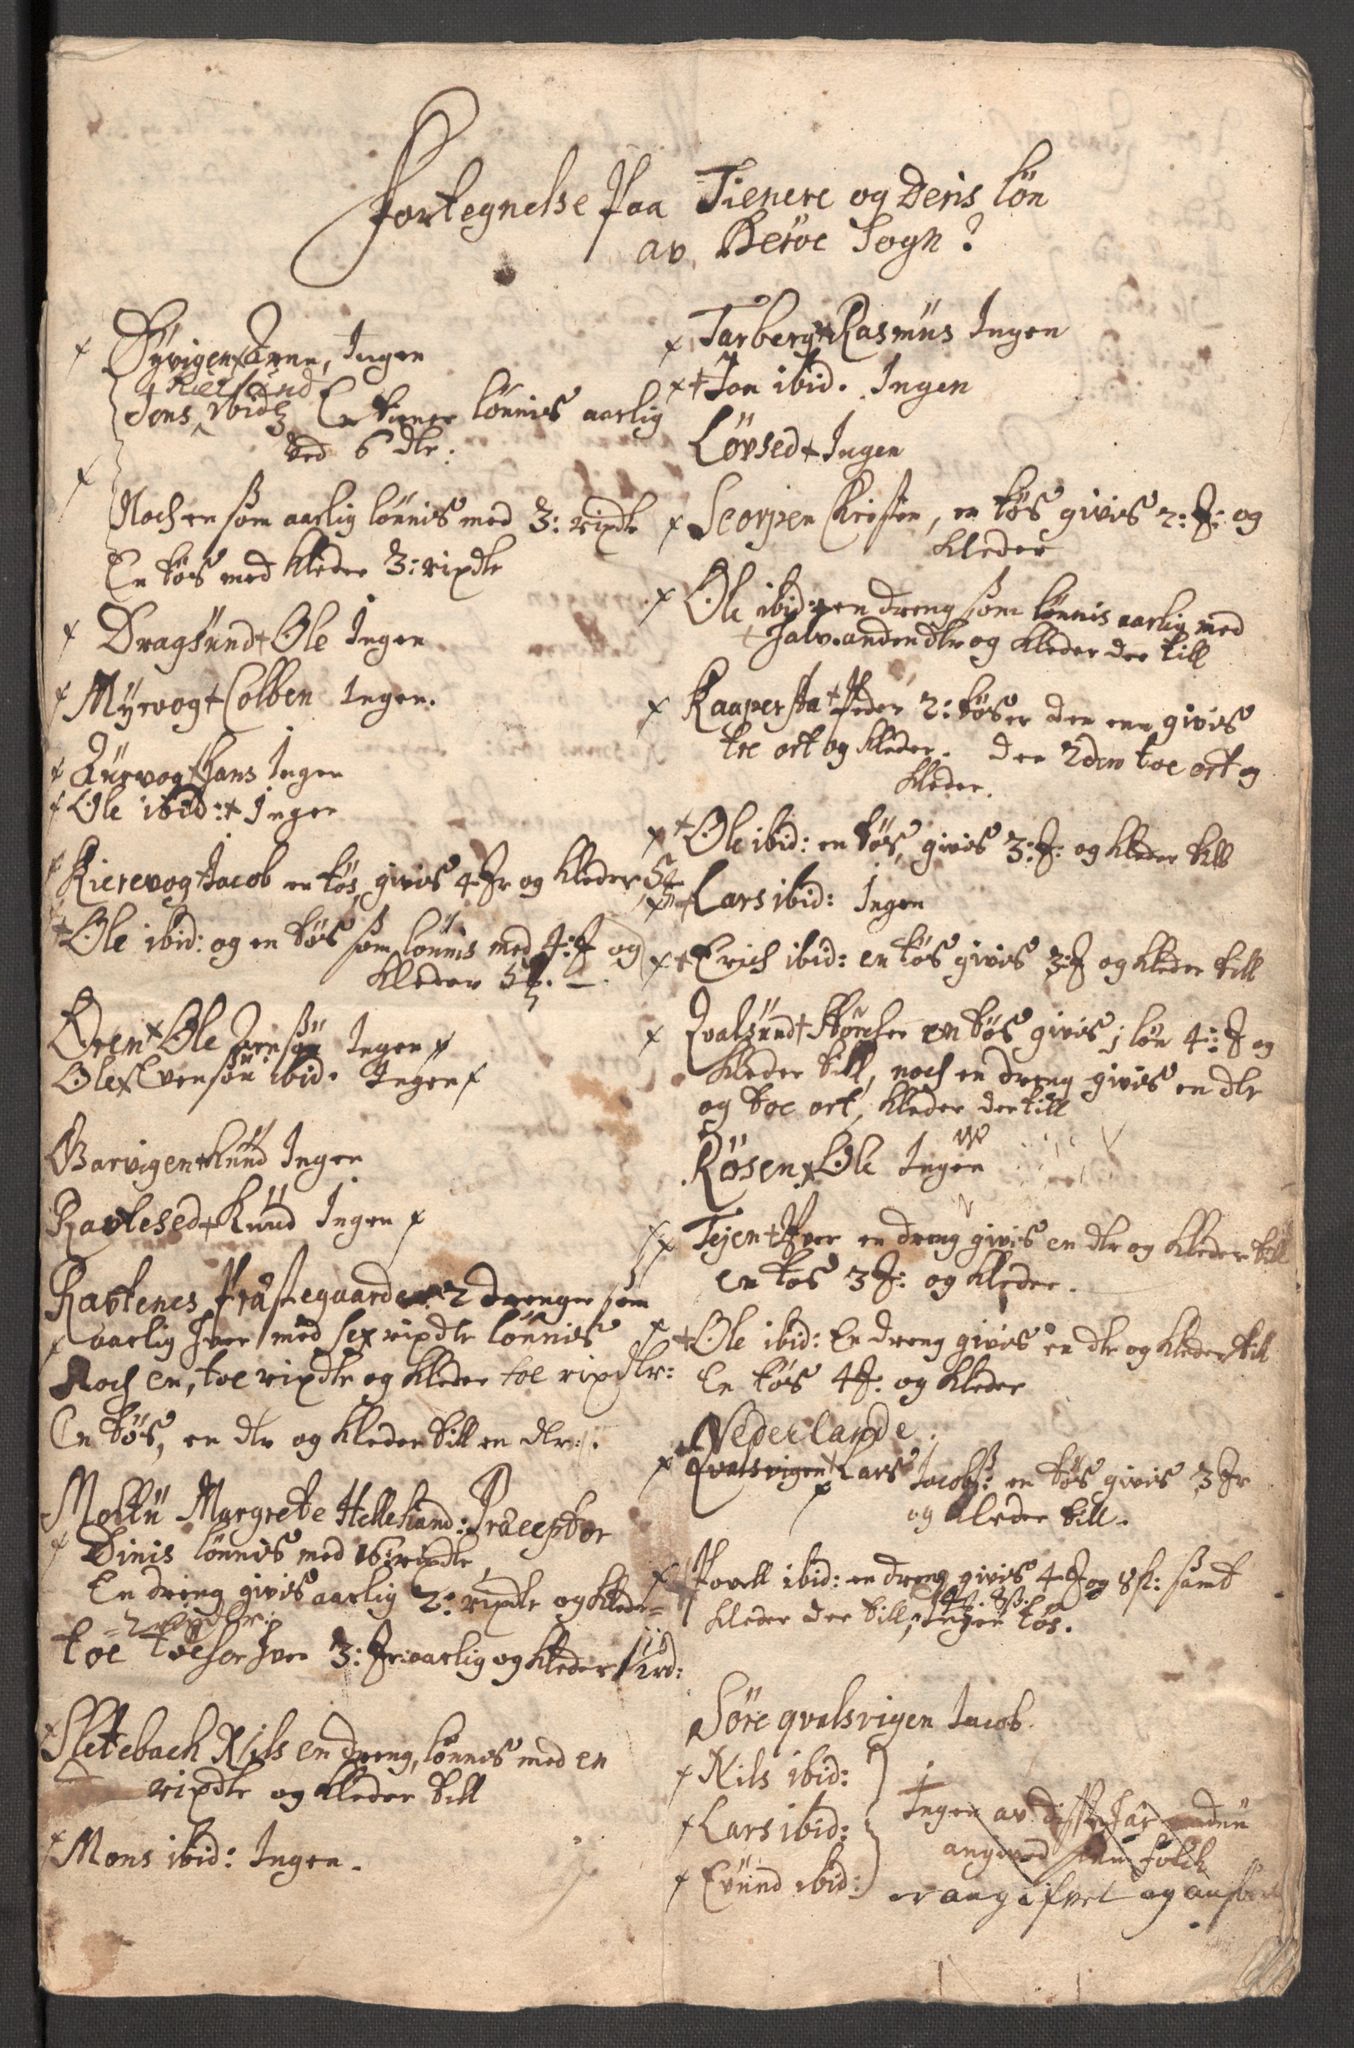 Fortegnelse Paa Tienere og Deris løn
av Herøe Sogn?
Dyvigen Arne, Ingen
Kielsund
Jens ibid En tiener lønnis aarlig
ved 6 dlr:
Noch en som aarlig lønnis med 3: rixdlr
En tøs med kleder 3: rixdlr
Dragsund Ole Ingen
Myrvog Colben Ingen.
Qurvog Hans Ingen
Ole ibid: Ingen
Kierevog Jacob en tøs givis 4 Jr og kleder
Ole ibid: og en tøs som lønnis med 4: J og
kleder
Øren Ole Ingen
Ole Evensøn ibid. Ingen
Barvigen Knud Ingen
Ravlesed Knud Ingen
Ravtenes Præstegaard 2 drenge som
aarlig hver med sex rixdlr lønnis
Noch en, toe rixdlr og kleder toe rixdlr:
En tøs, en dlr og kleder till en dlr:
Moltu Margrete Hellekand: Præceptor
Dinis lønnis med 16 rixdlr
En dreng givis aarlig 2: rixdlr og kleder
= 2 rixdlr:
toe tøeser hver 3: Jr: aarlig og kleder 1 rd:
Sletebach Nils en dreng, lønnes med en
rixdlr og kleder till
Mons ibid: Ingen.
Tarberg Rasmus Ingen
Jon ibid. Ingen
Løvsed Ingen
Scorpen Kristen, en tøs givis 2: J: og
kleder
Ole ibid: en dreng som lønnis aarlig med
halv anden dlr og kleder der till
Raaperstad Peder 2: tøser den enn givis
tre ort og kleder. den 2den toe ort og
kleder.
Ole ibid: en tøs givis 3: J: og kleder till
Lars ibid: Ingen
Erich ibid: en tøs givis 3: J og kleder till
Qvalsund Størcher en tøs givis i løn 4: J og
kleder till, noch en dreng givis en dlr
og toe ort, kleder der till
Røsen Ole Ingen
Tejen Iver en dreng givis en dlr og kleder till
en tøs 3 J: og kleder.
Ole ibid: En dreng givis en dlr og kleder till
En tøs 4 J. og kleder
Nederlande.
Qvalsvigen Lars Jacobs: en tøs givis 3 Jr
og kleder till.
Povell ibid: en dreng givis 4 J og 8 s: samt
4 J. 8 s.
kleder der till; Ingen tøs.
Søre qvalsvigen Jacob.
Nils ibid:
Lars ibid:
Evind ibid:
Ingen av disse har endnu
angived sinne folck
er angifvet og